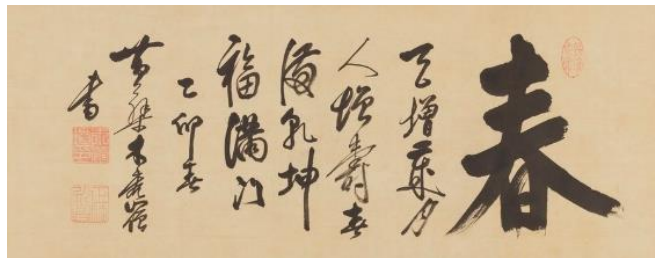 春
天增歲月
人增壽春
滿乾坤
福滿門
乙卯春
黄檗木菴
書